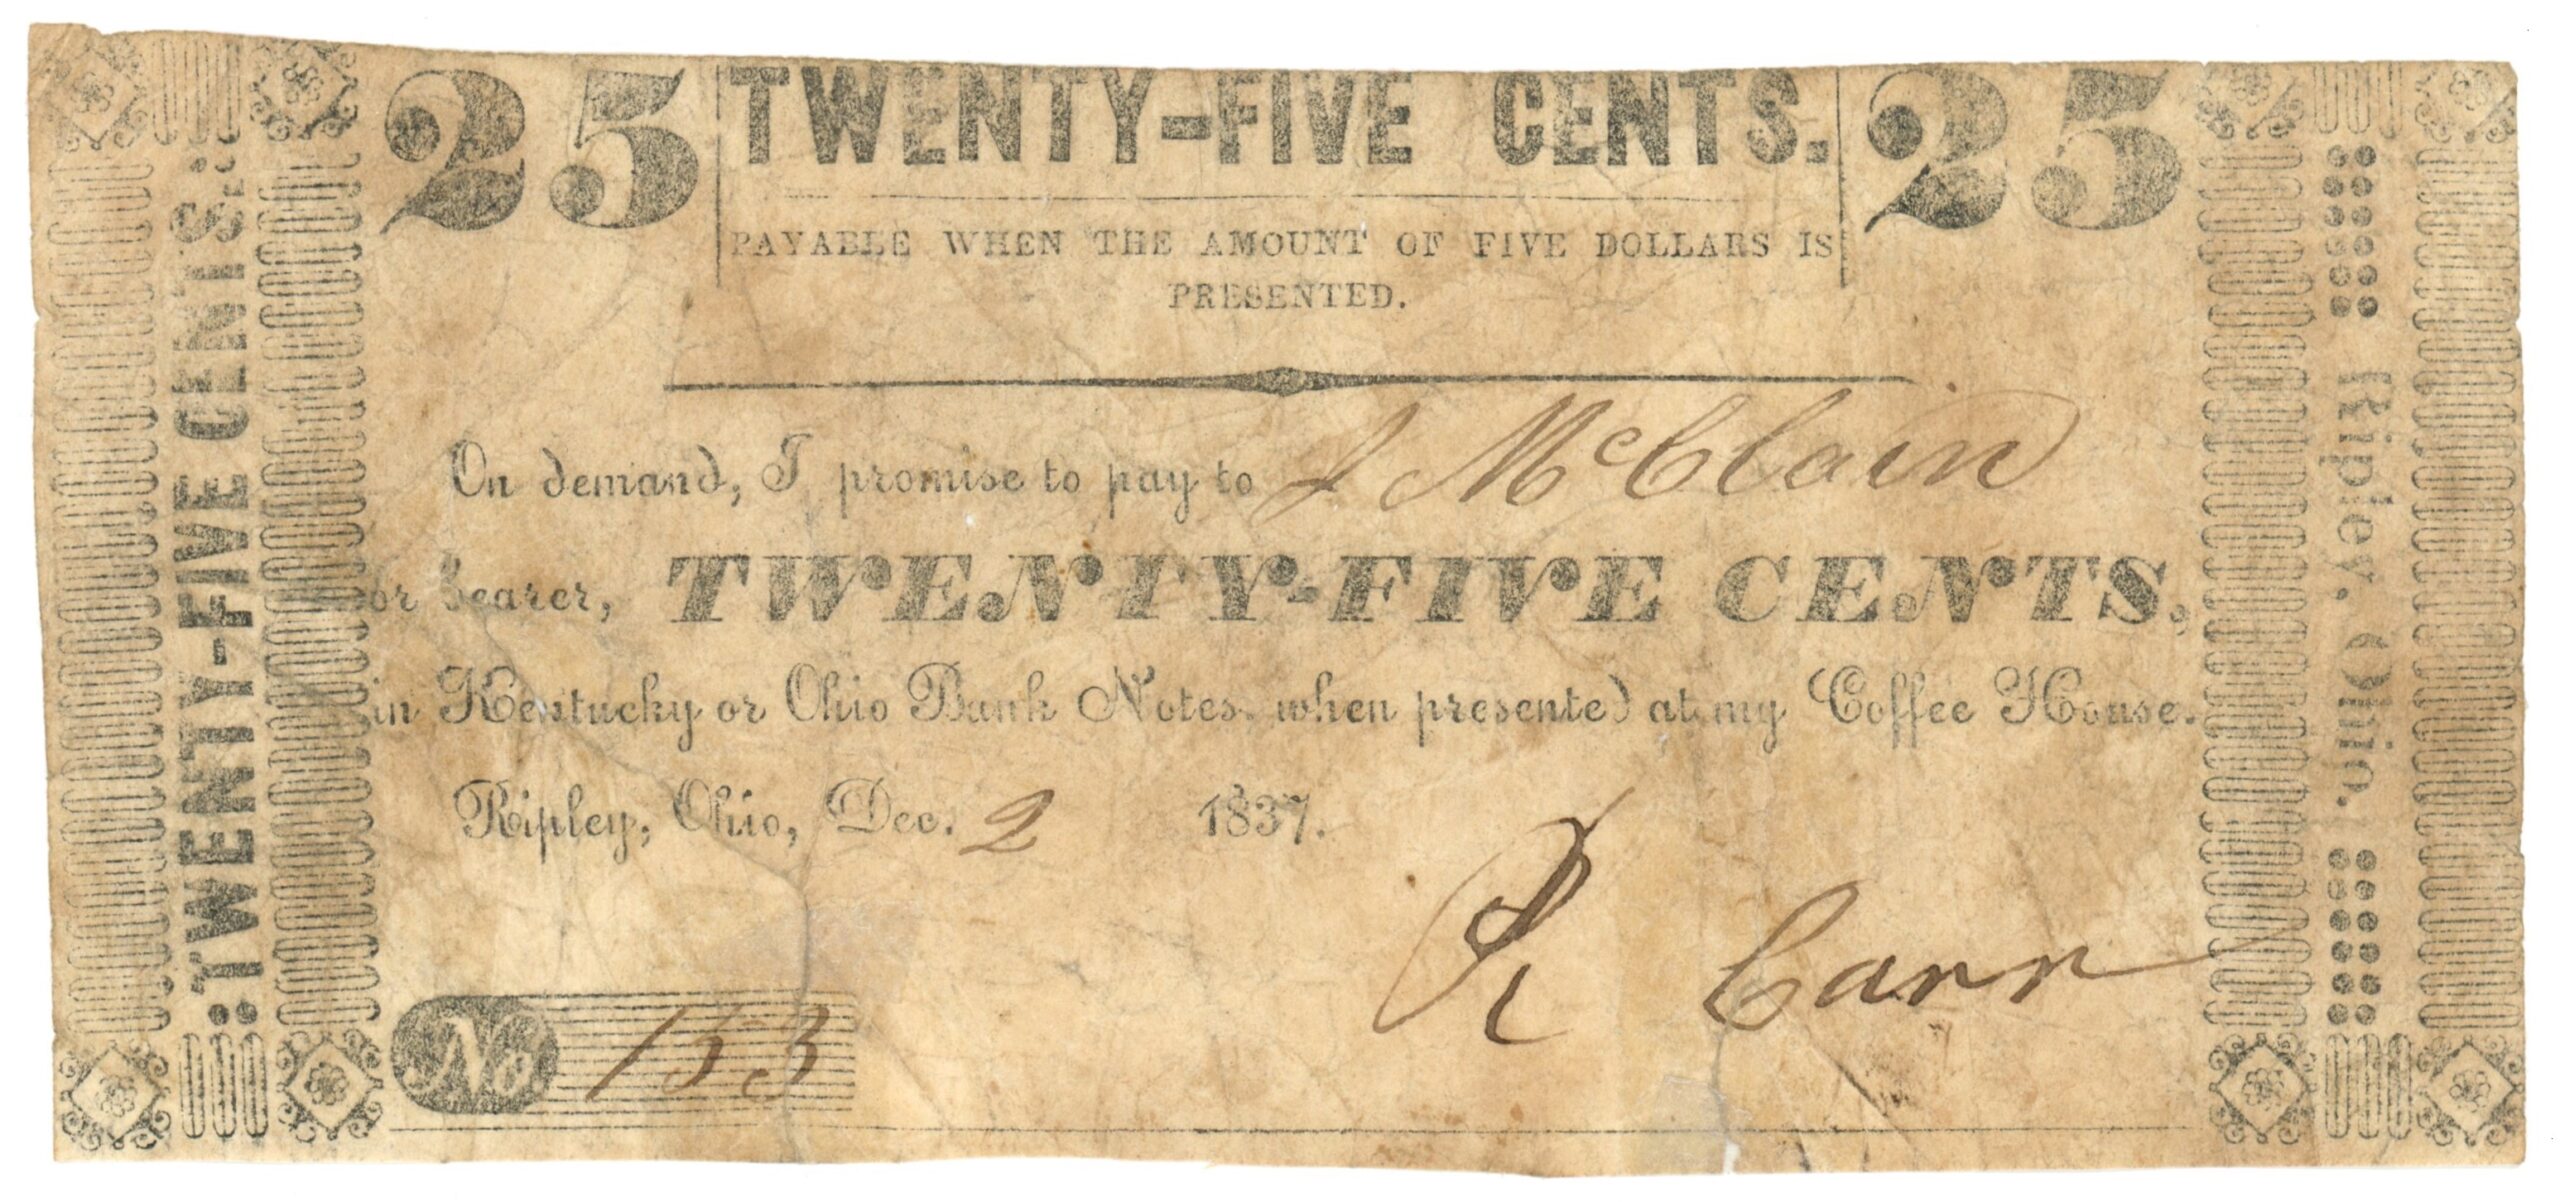 25 TWENTY-FIVE CENTS. 25
PAYABLE WHEN THE AMOUNT OF FIVE DOLLARS IS
PRESENTED.
On demand, I promise to pay to J McClain
or bearer, TWENTY-FIVE CENTS,
in Kentucky or Ohio Bank Notes. when presented at my Coffee House.
Ripley, Ohio, Dec. 2 1837.
R Carr
No 153
TWENTY-FIVE CENTS.
Ripley, Ohio.